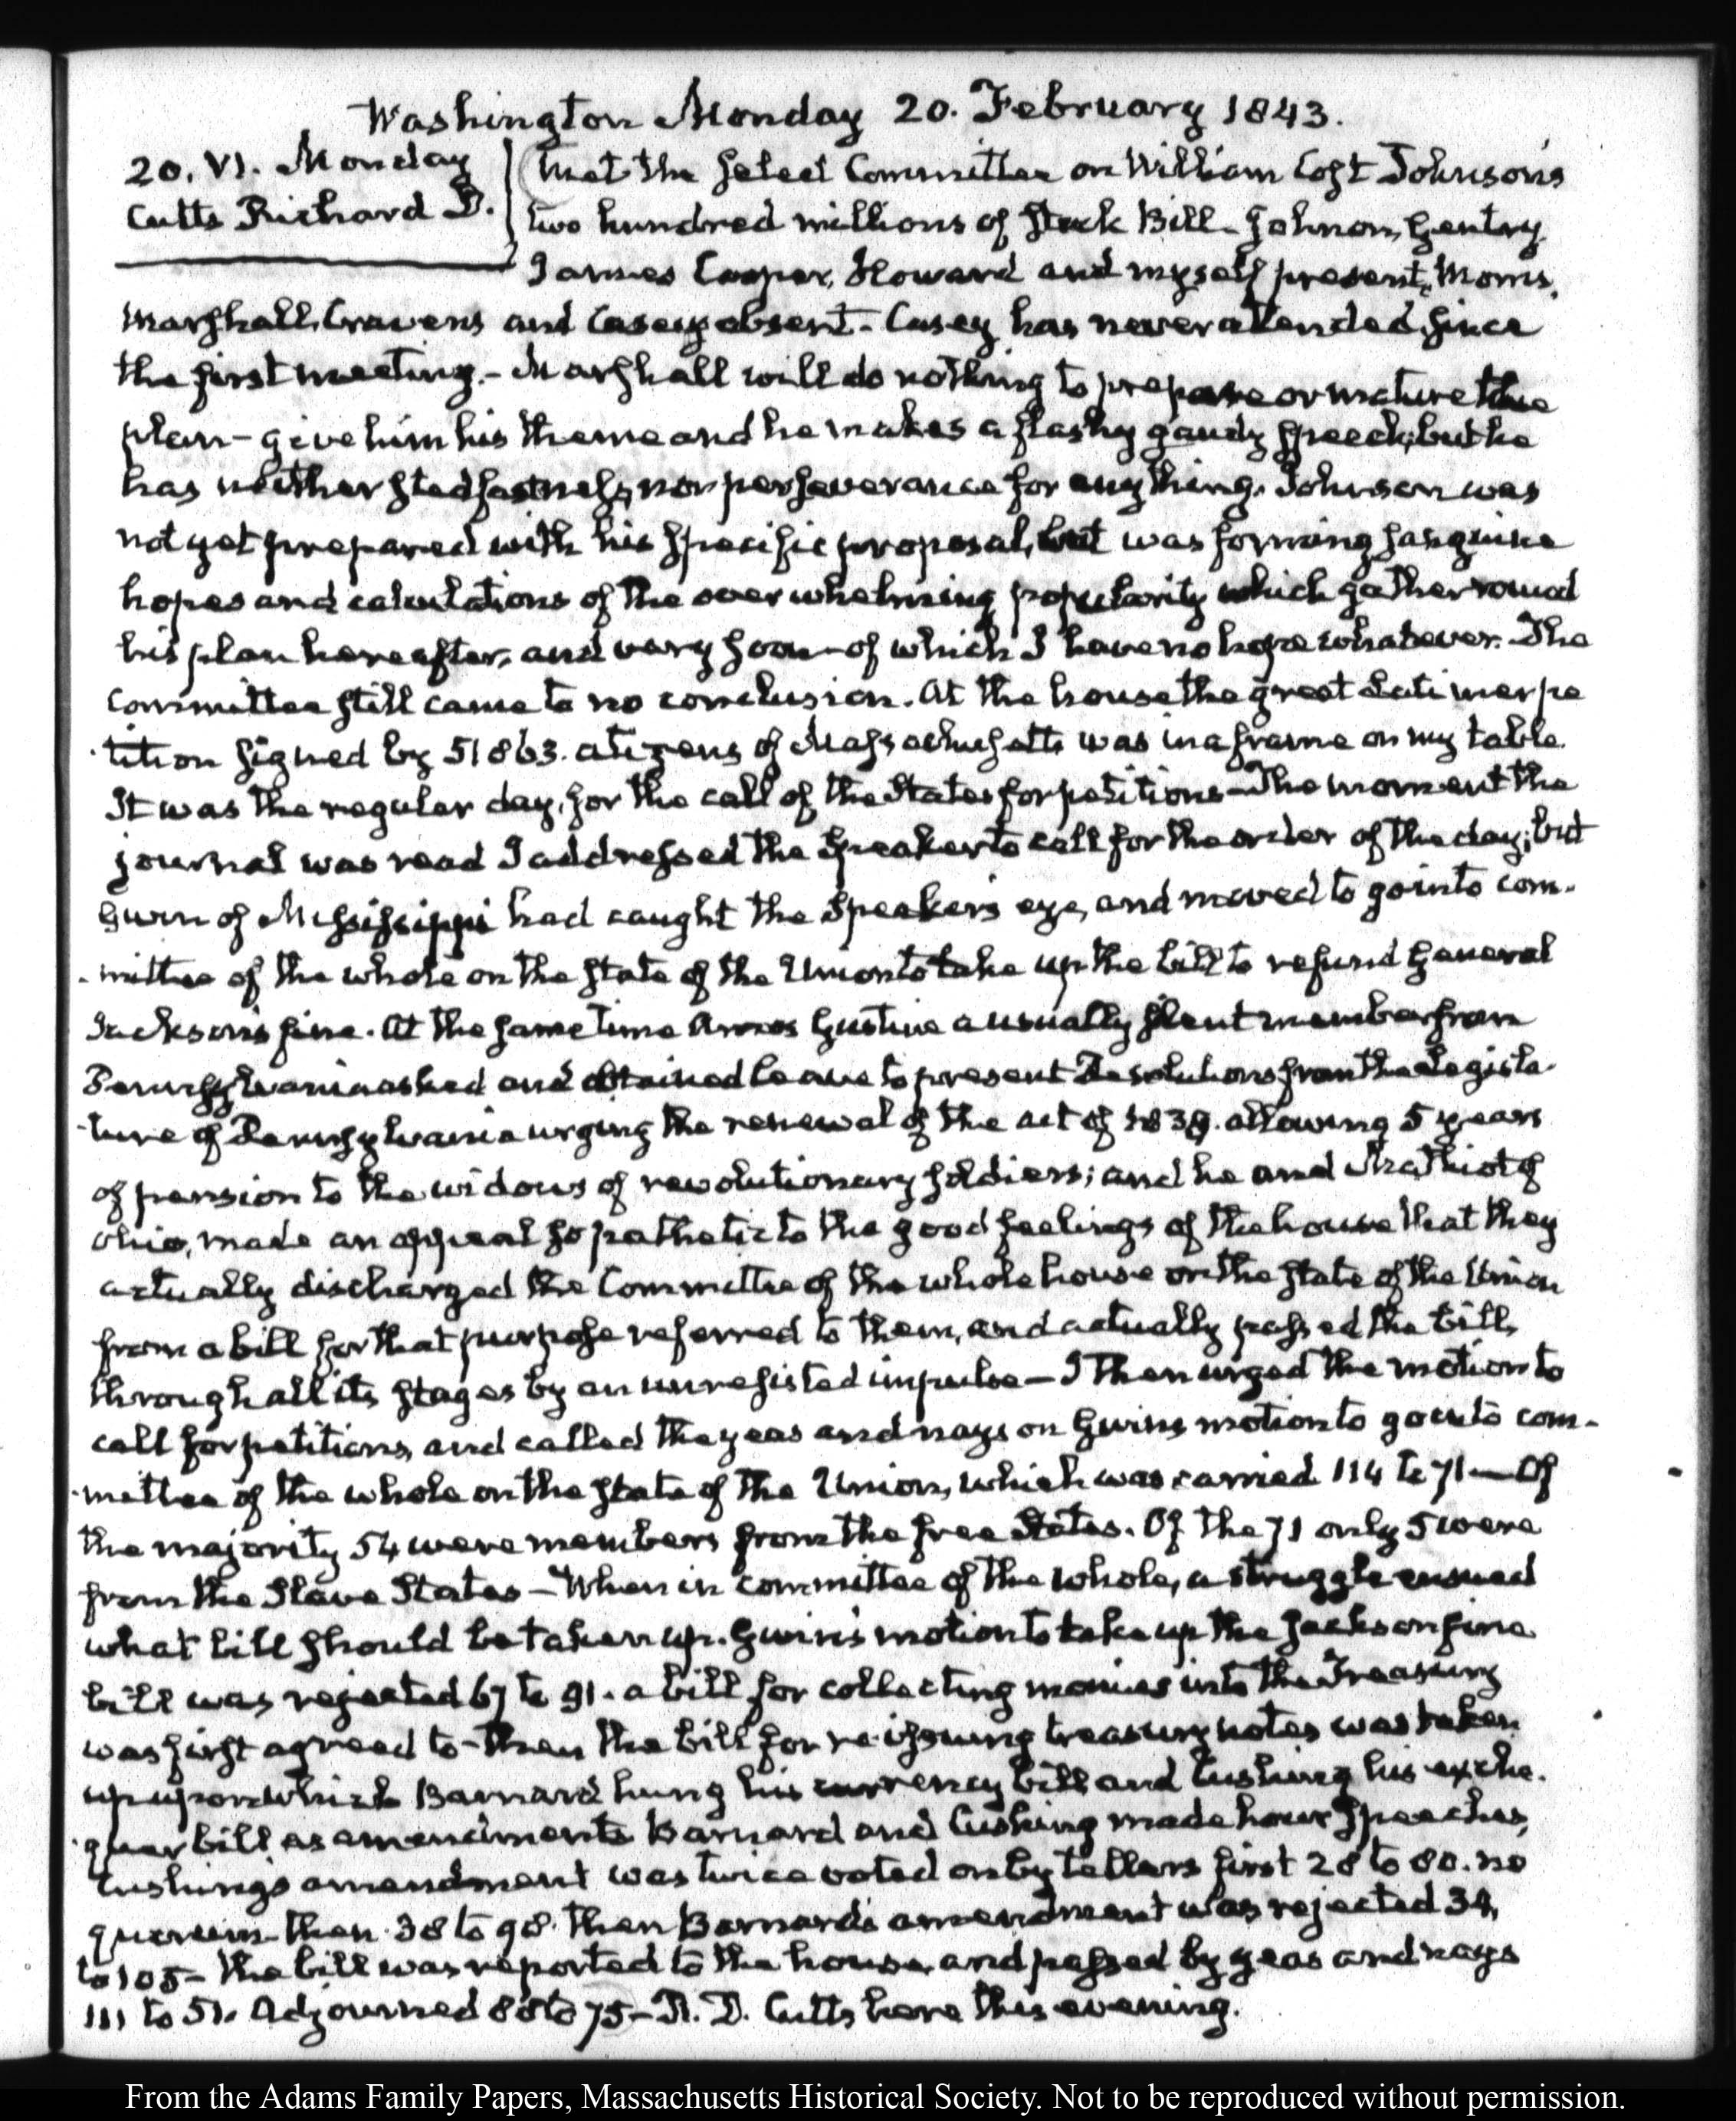 Washington Monday 20. February 1843.
20. VI. Monday
Cutts Richard D.
Met the Select Committee on William Cost Johnson's
two hundred millions of Stock Bill - Johnson, Gentry
James Cooper, Howard and myself present, Morris,
Marshall, Cravens and Casey absent - Casey has never attended since
the first meeting. - Marshall will do nothing to prepare or mature the
plan - give him his theme and he makes a flashy gaudy speech; but he
has neither stedfastness, nor perseverance for any thing. Johnson was
not yet prepared with his specific proposal, but was forming sanguine
hopes and calculations of the overwhelming popularity which gather round
his plan hereafter, and very soon - of which I have no hope whatever. The
committee still came to no conclusion. At the house the great Latimer pe
tition signed by 51863. citizens of Massachusetts was in a frame on my table.
It was the regular day, for the call of the States for petitions - The moment the
journal was read I addressed the Speaker to call for the order of the day; but
Gwin of Mississippi had caught the Speaker's eye, and moved to go into com-
mittee of the whole on the state of the Union to take up the bill to refund General
Jackson's fine. At the same time Amos Gustine a usually silent member from
Pennsylvania asked and obtained leave to present Resolutions from the Legisla-
ture of Pennsylvania urging the renewal of the act of 1838. allowing 5 years
of pension to the widows of revolutionary soldiers; and he and Mathiot of
Ohio, made an appeal so pathetic to the good feelings of the house that they
actually discharged the Committee of the whole house on the state of the Union
from a bill for that purpose referred to them, and actually passed the bill,
through all its stages by an unresisted impulse - I then urged the motion to
call for petitions, and called the yeas and nays on Gwin's motion to go into com-
mittee of the whole on the state of the Union, which was carried 114 to 71 - Of
the majority 54 were members from the free States. Of the 71 only 5 were
from the Slave States - When in committee of the whole, a struggle ensued
what bill should be taken up. Gwin's motion to take up the Jackson fine
bill was rejected 67 to 91. a bill for collecting monies into the Treasury
was first agreed to - Then the bill for re-issuing treasury notes was taken
up upon which Barnard hung his currency bill and Cushing his exche-
quer bill as amendments Barnard and Cushing made hour speeches,
Cushing's amendment was twice voted on by tellers first 28 to 80. no
quorum - then 38 to 98. Then Barnard's amendment was rejected 34,
to 105 - the bill was reported to the house and passed by yeas and nays
111 to 51. Adjourned 88 to 75 - R. D. Cutts here this evening.
From the Adams Family Papers, Massachusetts Historical Society. Not to be reproduced without permission.